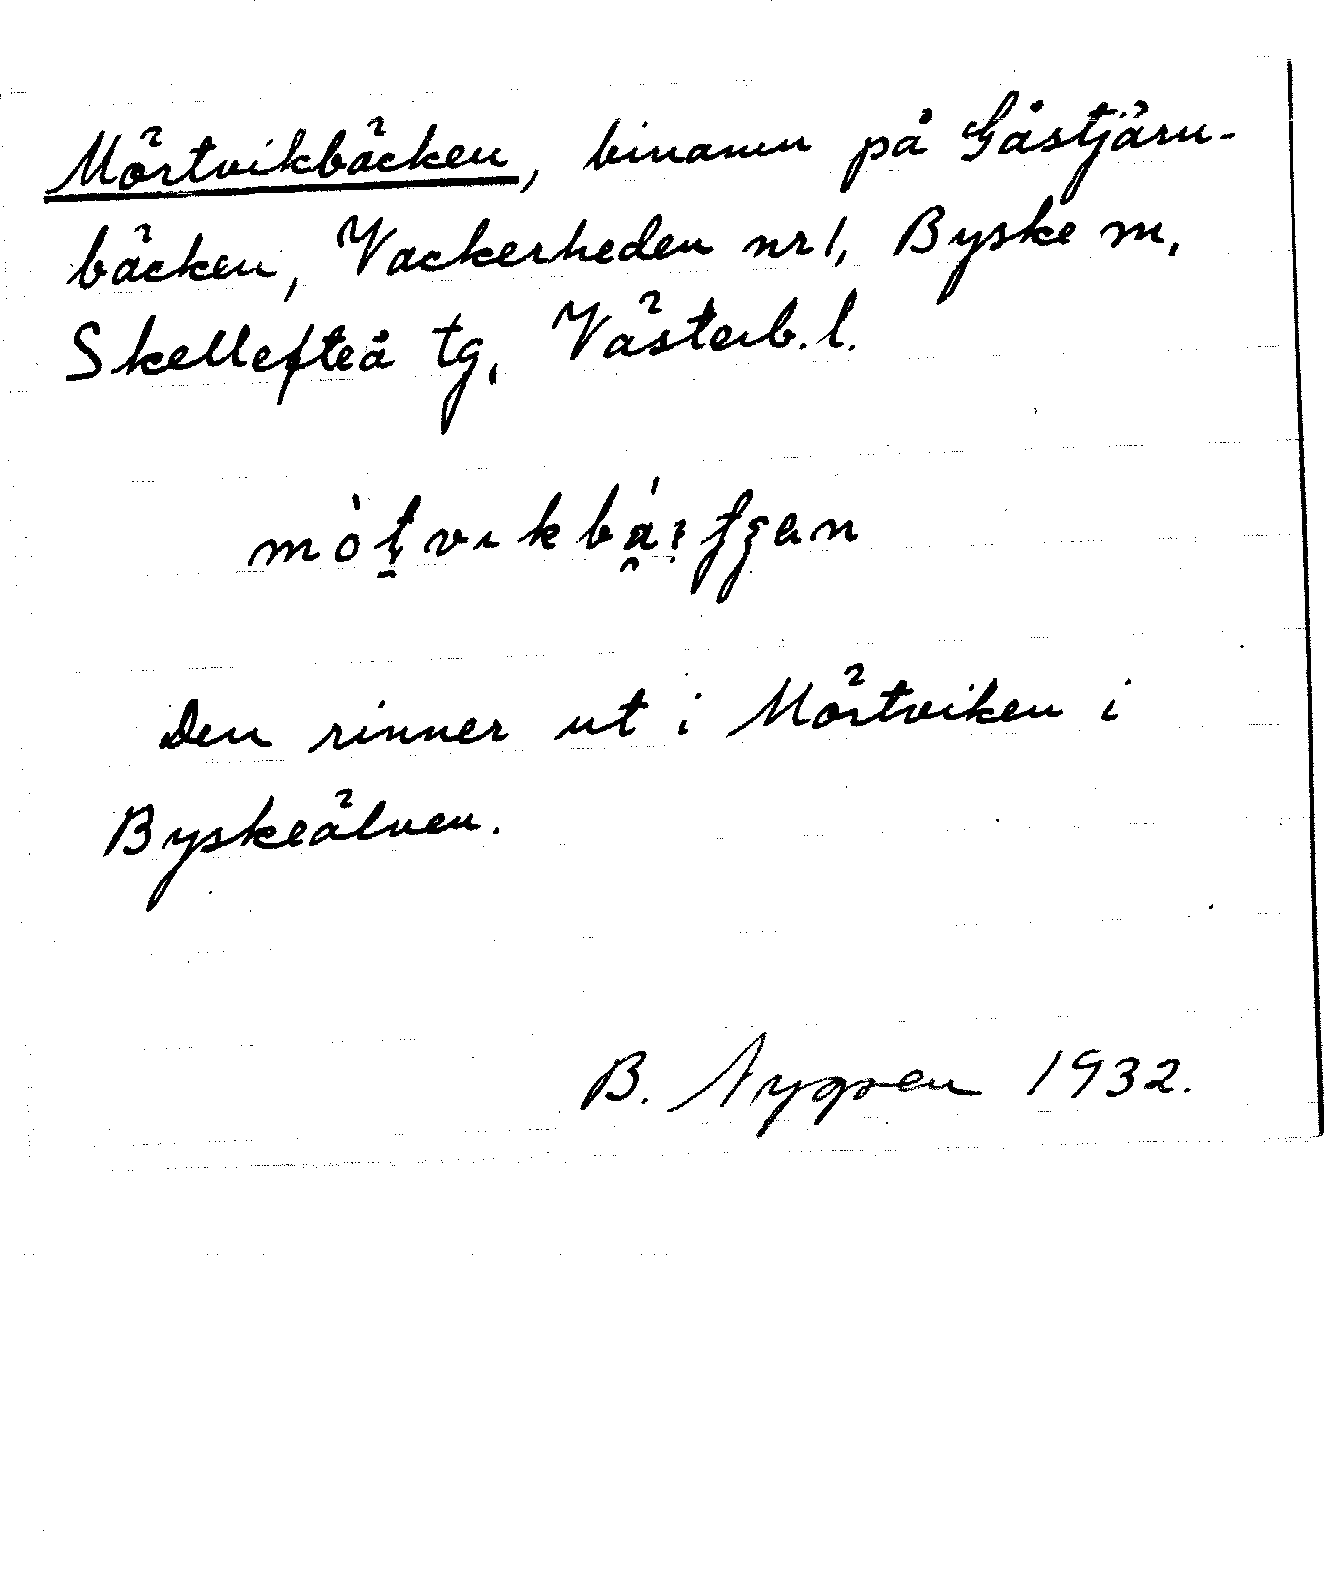 Mörtvikbäcken, binamn på Gåstjärn-
bäcken, Vackerheden nr 1, Byske sn,
Skellefteå tg, Västerb. l.
Den rinner ut i Mörtviken i
Byskeälven.
B. Nygren 1932.